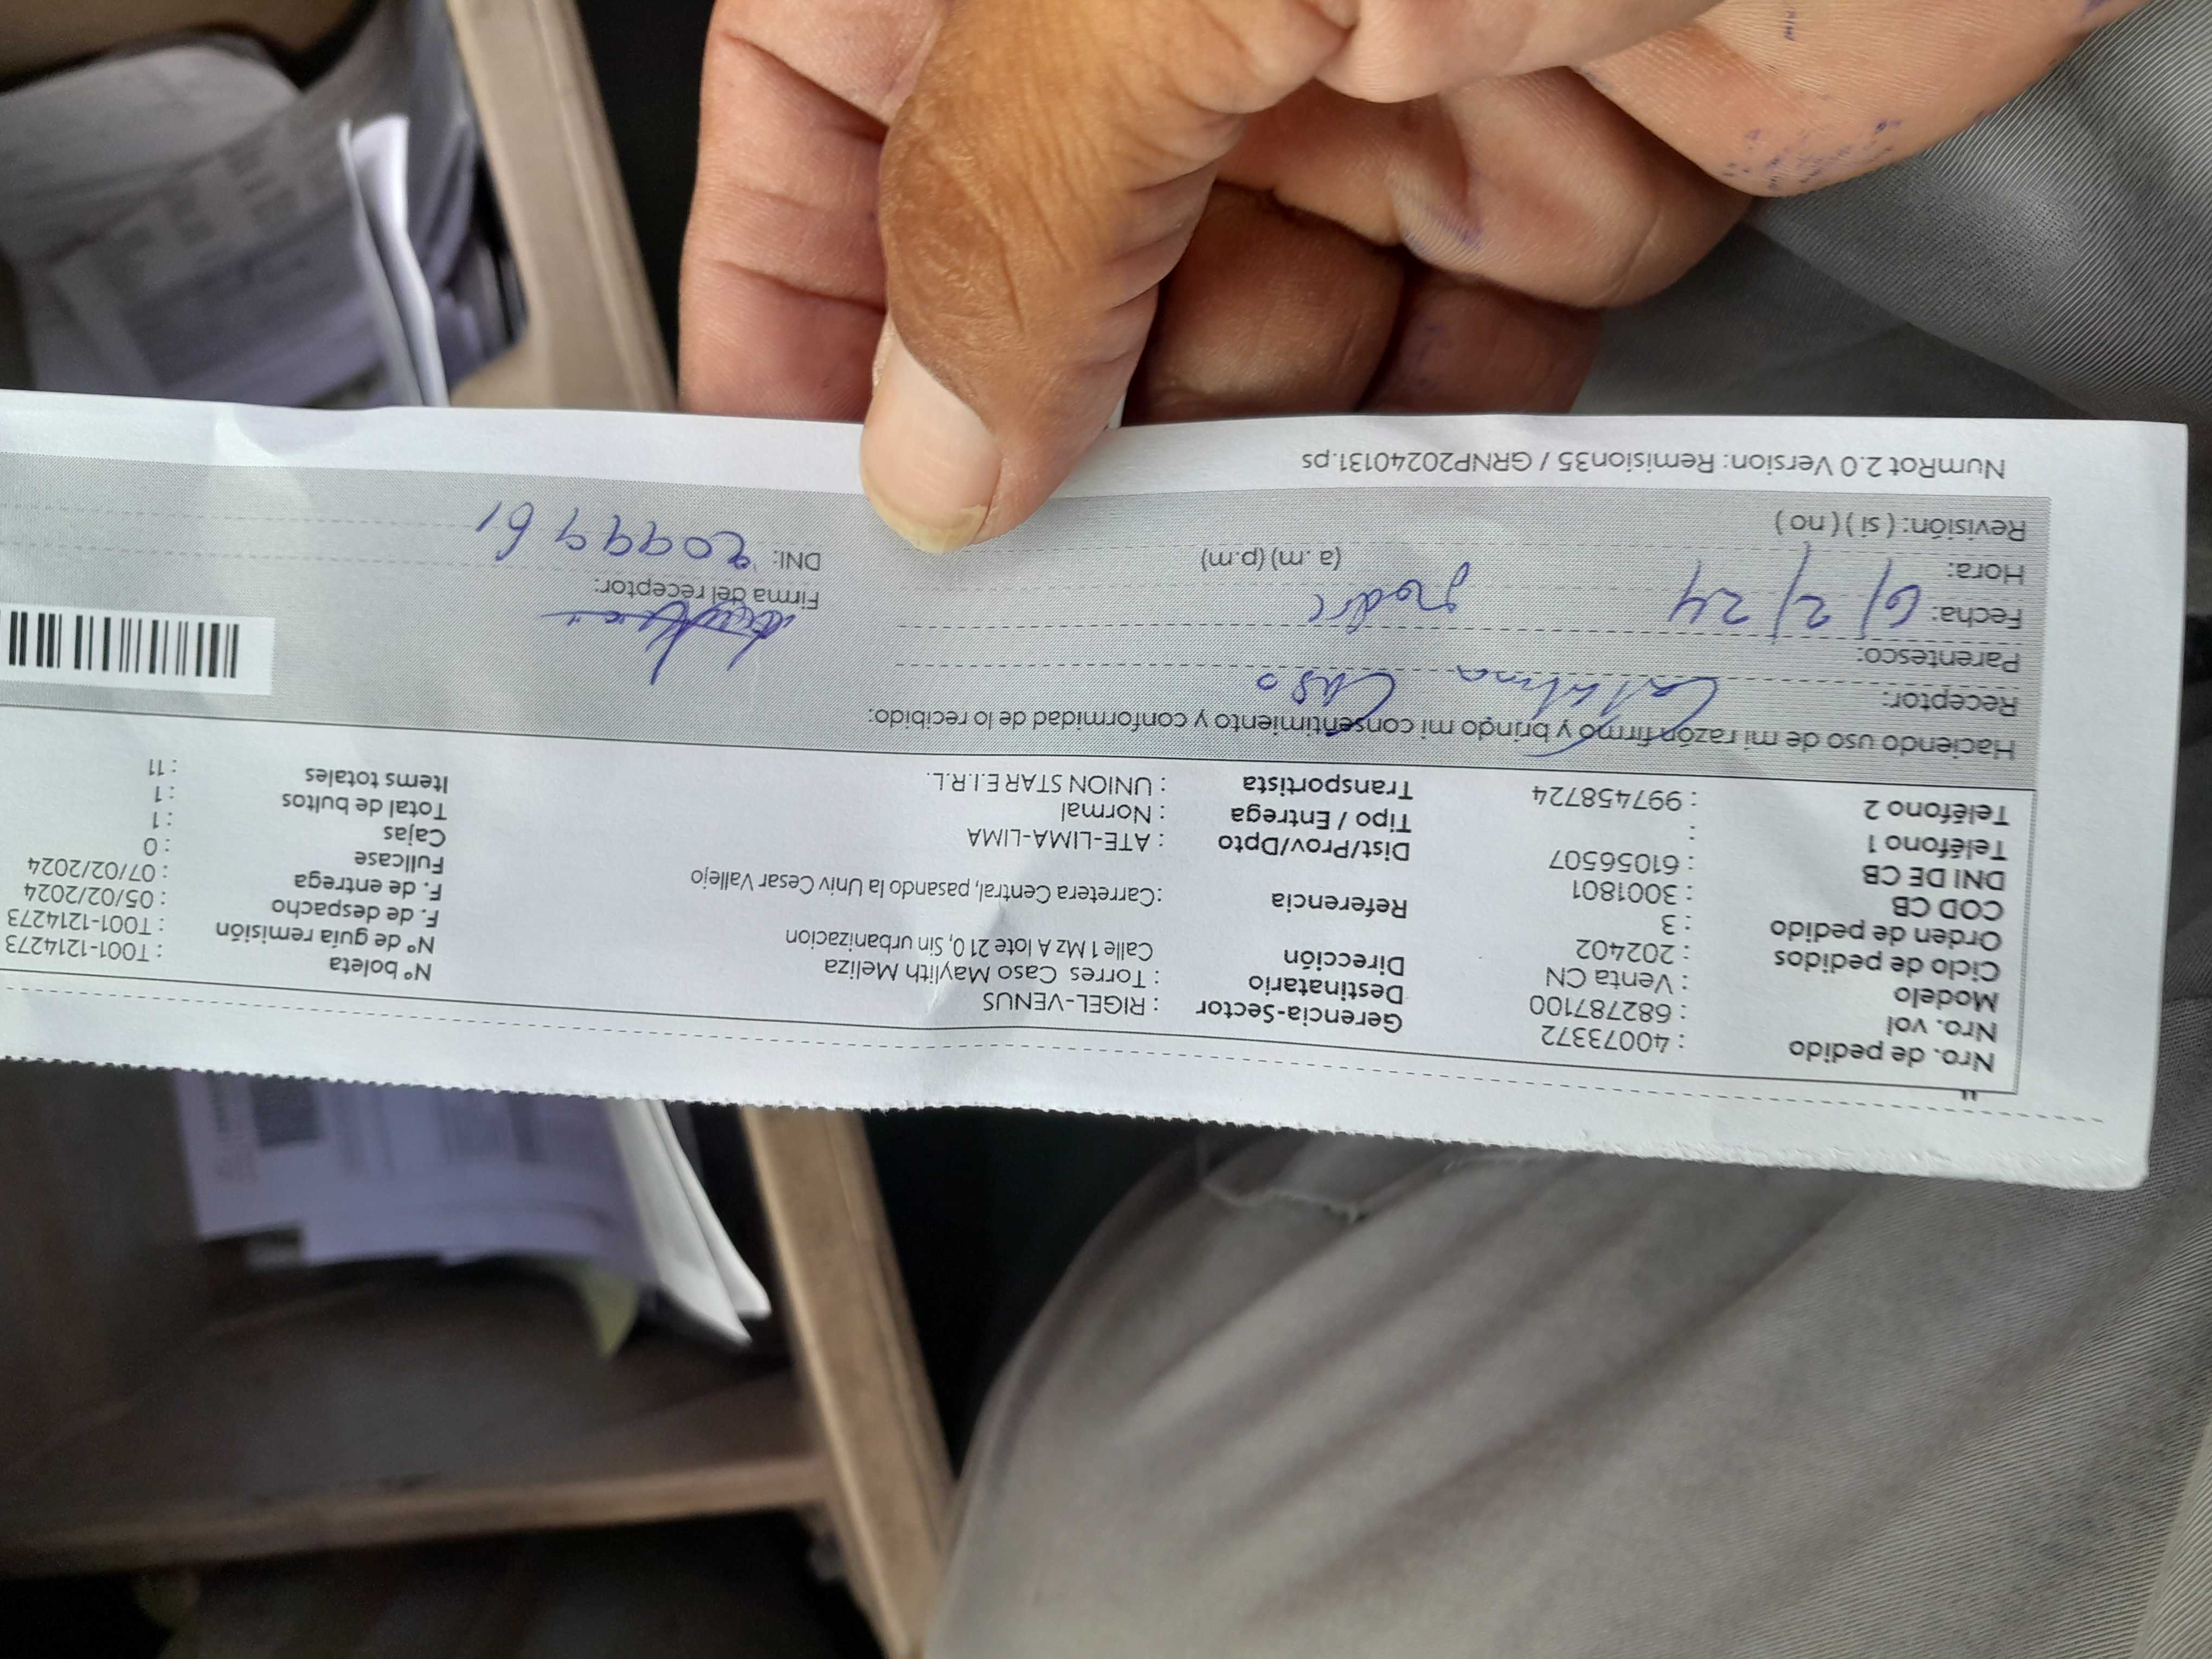 Nro. de pedido : 40073372 Gerencia-Sector : RIGEL-VENUS Nº boleta : T001-1214273
Nro. vol : 682787100 Destinatario : Torres Caso Maylith Meliza Nº de guía remisión : T001-1214273
Modelo : Venta CN Dirección Calle 1 Mz A lote 21 0, Sin urbanizacion F. de despacho : 05/02/2024
Ciclo de pedidos : 202402 F. de entrega : 07/02/2024
Orden de pedido : 3 Referencia : Carretera Central, pasando la Univ Cesar Vallejo Fullcase : 0
COD CB : 3001801 Cajas : 1
DNI DE CB : 61056507 Dist/Prov/Dpto : ATE-LIMA-LIMA Total de bultos : 1
Teléfono 1 : Tipo / Entrega : Normal Items totales : 11
Teléfono 2 : 997458724 Transportista : UNION STAR E.I.R.L.
Haciendo uso de mi razón firmo y brindo mi consentimiento y conformidad de lo recibido:
Receptor: Catalina Caso
Parentesco: madre
Fecha: 6/2/24 Firma del receptor:
Hora: (a. m) (p.m) DNI:
Revisión: ( si ) ( no )
NumRot 2.0 Version: Remision35 / GRNP20240131.ps